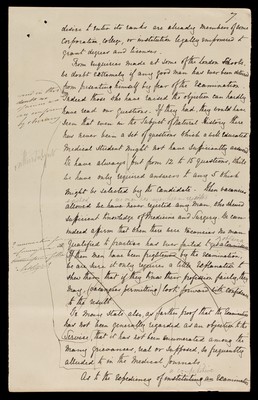 7
desire to enter its ranks are already members of some
Corporation, college, or institution legally empowered to
grant degrees and licences.
From enquiries made at some of the London Schools,
we doubt extremely if any good man has ever been deterred
from presenting himself by fear of the Examination.
Indeed those who have raised the objection can hardly
have read our questions. If they had, they would have
seen that even in the subject of Natural History there
has never been a set of questions which a well educated
Medical student might not have sufficiently answered
We have always put from 12 to 15 questions, while
we have only required answers to any 5 which
might be selected by the Candidate. When vacancies
allowed we have never rejected any man who showed
sufficient knowledge of Medicine and Surgery. We can
indeed affirm that when there were vacancies no man
qualified to practice has ever failed to
If then men have been frightened by the examination
we are sure it only requires a little explanation to
show them that if they know their profession fairly, they
may, (vacancies permitting) look forward with confidence
to the result
We may state also, as further proof that the Examination
has not been generally regarded as an objection to the
Service, that it has not been enumerated among the
many grievances, real or supposed, so frequently
alluded to in the Medical Journals.
As to the expediency of instituting an Examination